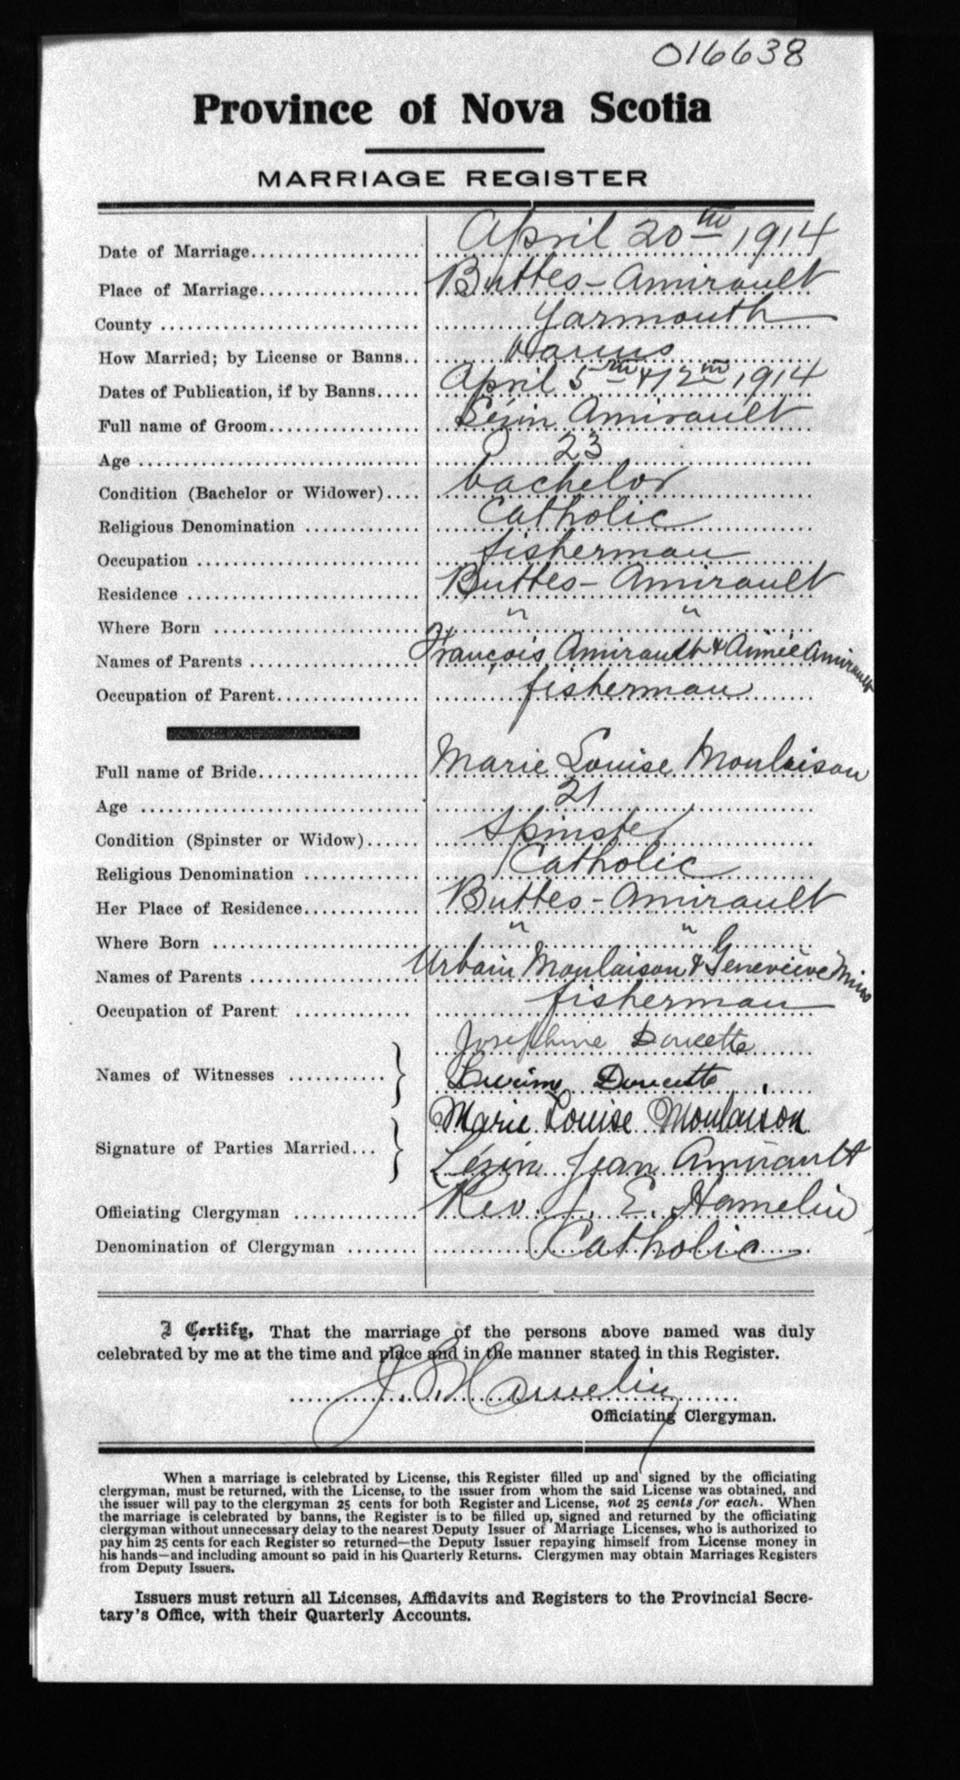 016638
Province of Nova Scotia
MARRIAGE REGISTER
Date of Marriage.................... April 20th 1914
Place of Marriage................... Buttes-Amirault
County ............................. Yarmouth
How Married; by License or Banns.. banns
Dates of Publication, if by Banns..... April 5th & 12th 1914
Full name of Groom.................. Lézin Amirault
Age ................................ 23
Condition (Bachelor or Widower).... bachelor
Religious Denomination .............. Catholic
Occupation .......................... fisherman
Residence ........................... Buttes-Amirault
Where Born .......................... " "
Names of Parents .................... François Amirault & Aimée Amirault
Occupation of Parent................. fisherman
Full name of Bride................... Marie Louise Moulaison
Age ................................. 21
Condition (Spinster or Widow)...... Spinster
Religious Denomination .............. Catholic
Her Place of Residence.............. Buttes-Amirault
Where Born .......................... " "
Names of Parents .................... Urbain Moulaison & Geneviève Mius
Occupation of Parent ............. fisherman
Josephine Doucette
Names of Witnesses ...........}
Doucette
Marie Louise Moulaison
Signature of Parties Married...}
Lézin Jean Amirault
Officiating Clergyman .............. Rev. J. E. Hamelin
Denomination of Clergyman ........ Catholic
I Certify, That the marriage of the persons above named was duly
celebrated by me at the time and place and in the manner stated in this Register.
J. E. Hamelin
Officiating Clergyman.
When a marriage is celebrated by License, this Register filled up and signed by the officiating
clergyman, must be returned, with the License, to the issuer from whom the said License was obtained, and
the issuer will pay to the clergyman 25 cents for both Register and License, not 25 cents for each. When
the marriage is celebrated by banns, the Register is to be filled up, signed and returned by the officiating
clergyman without unnecessary delay to the nearest Deputy Issuer of Marriage Licenses, who is authorized to
pay him 25 cents for each Register so returned—the Deputy Issuer repaying himself from License money in
his hands—and including amount so paid in his Quarterly Returns. Clergymen may obtain Marriages Registers
from Deputy Issuers.
Issuers must return all Licenses, Affidavits and Registers to the Provincial Secre-
tary's Office, with their Quarterly Accounts.